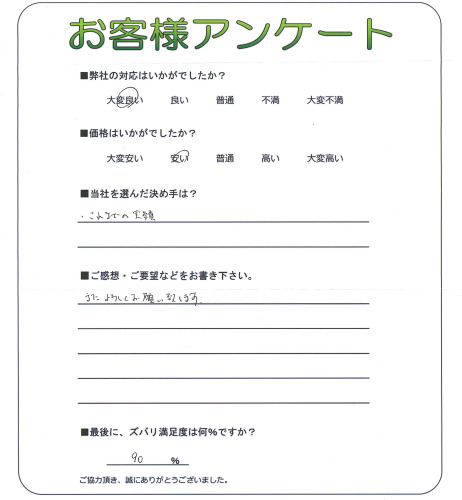 お客様アンケート
■弊社の対応はいかがでしたか？
大変良い 良い 普通 不満 大変不満
■価格はいかがでしたか？
大変安い 安い 普通 高い 大変高い
■当社を選んだ決め手は？
・これまでの実績
■ご感想・ご要望などをお書き下さい。
またよろしくお願い致します。
■最後に、ズバリ満足度は何％ですか？
90 ％
ご協力頂き、誠にありがとうございました。